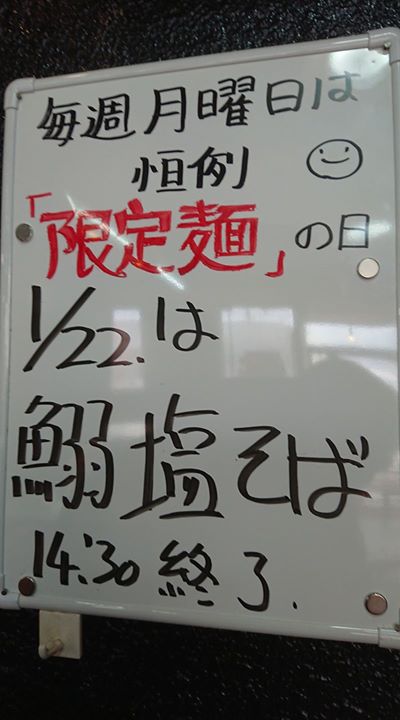 毎週月曜日は
恒例
「限定麺」の日
1/22.は
鰯塩そば
14:30終了.